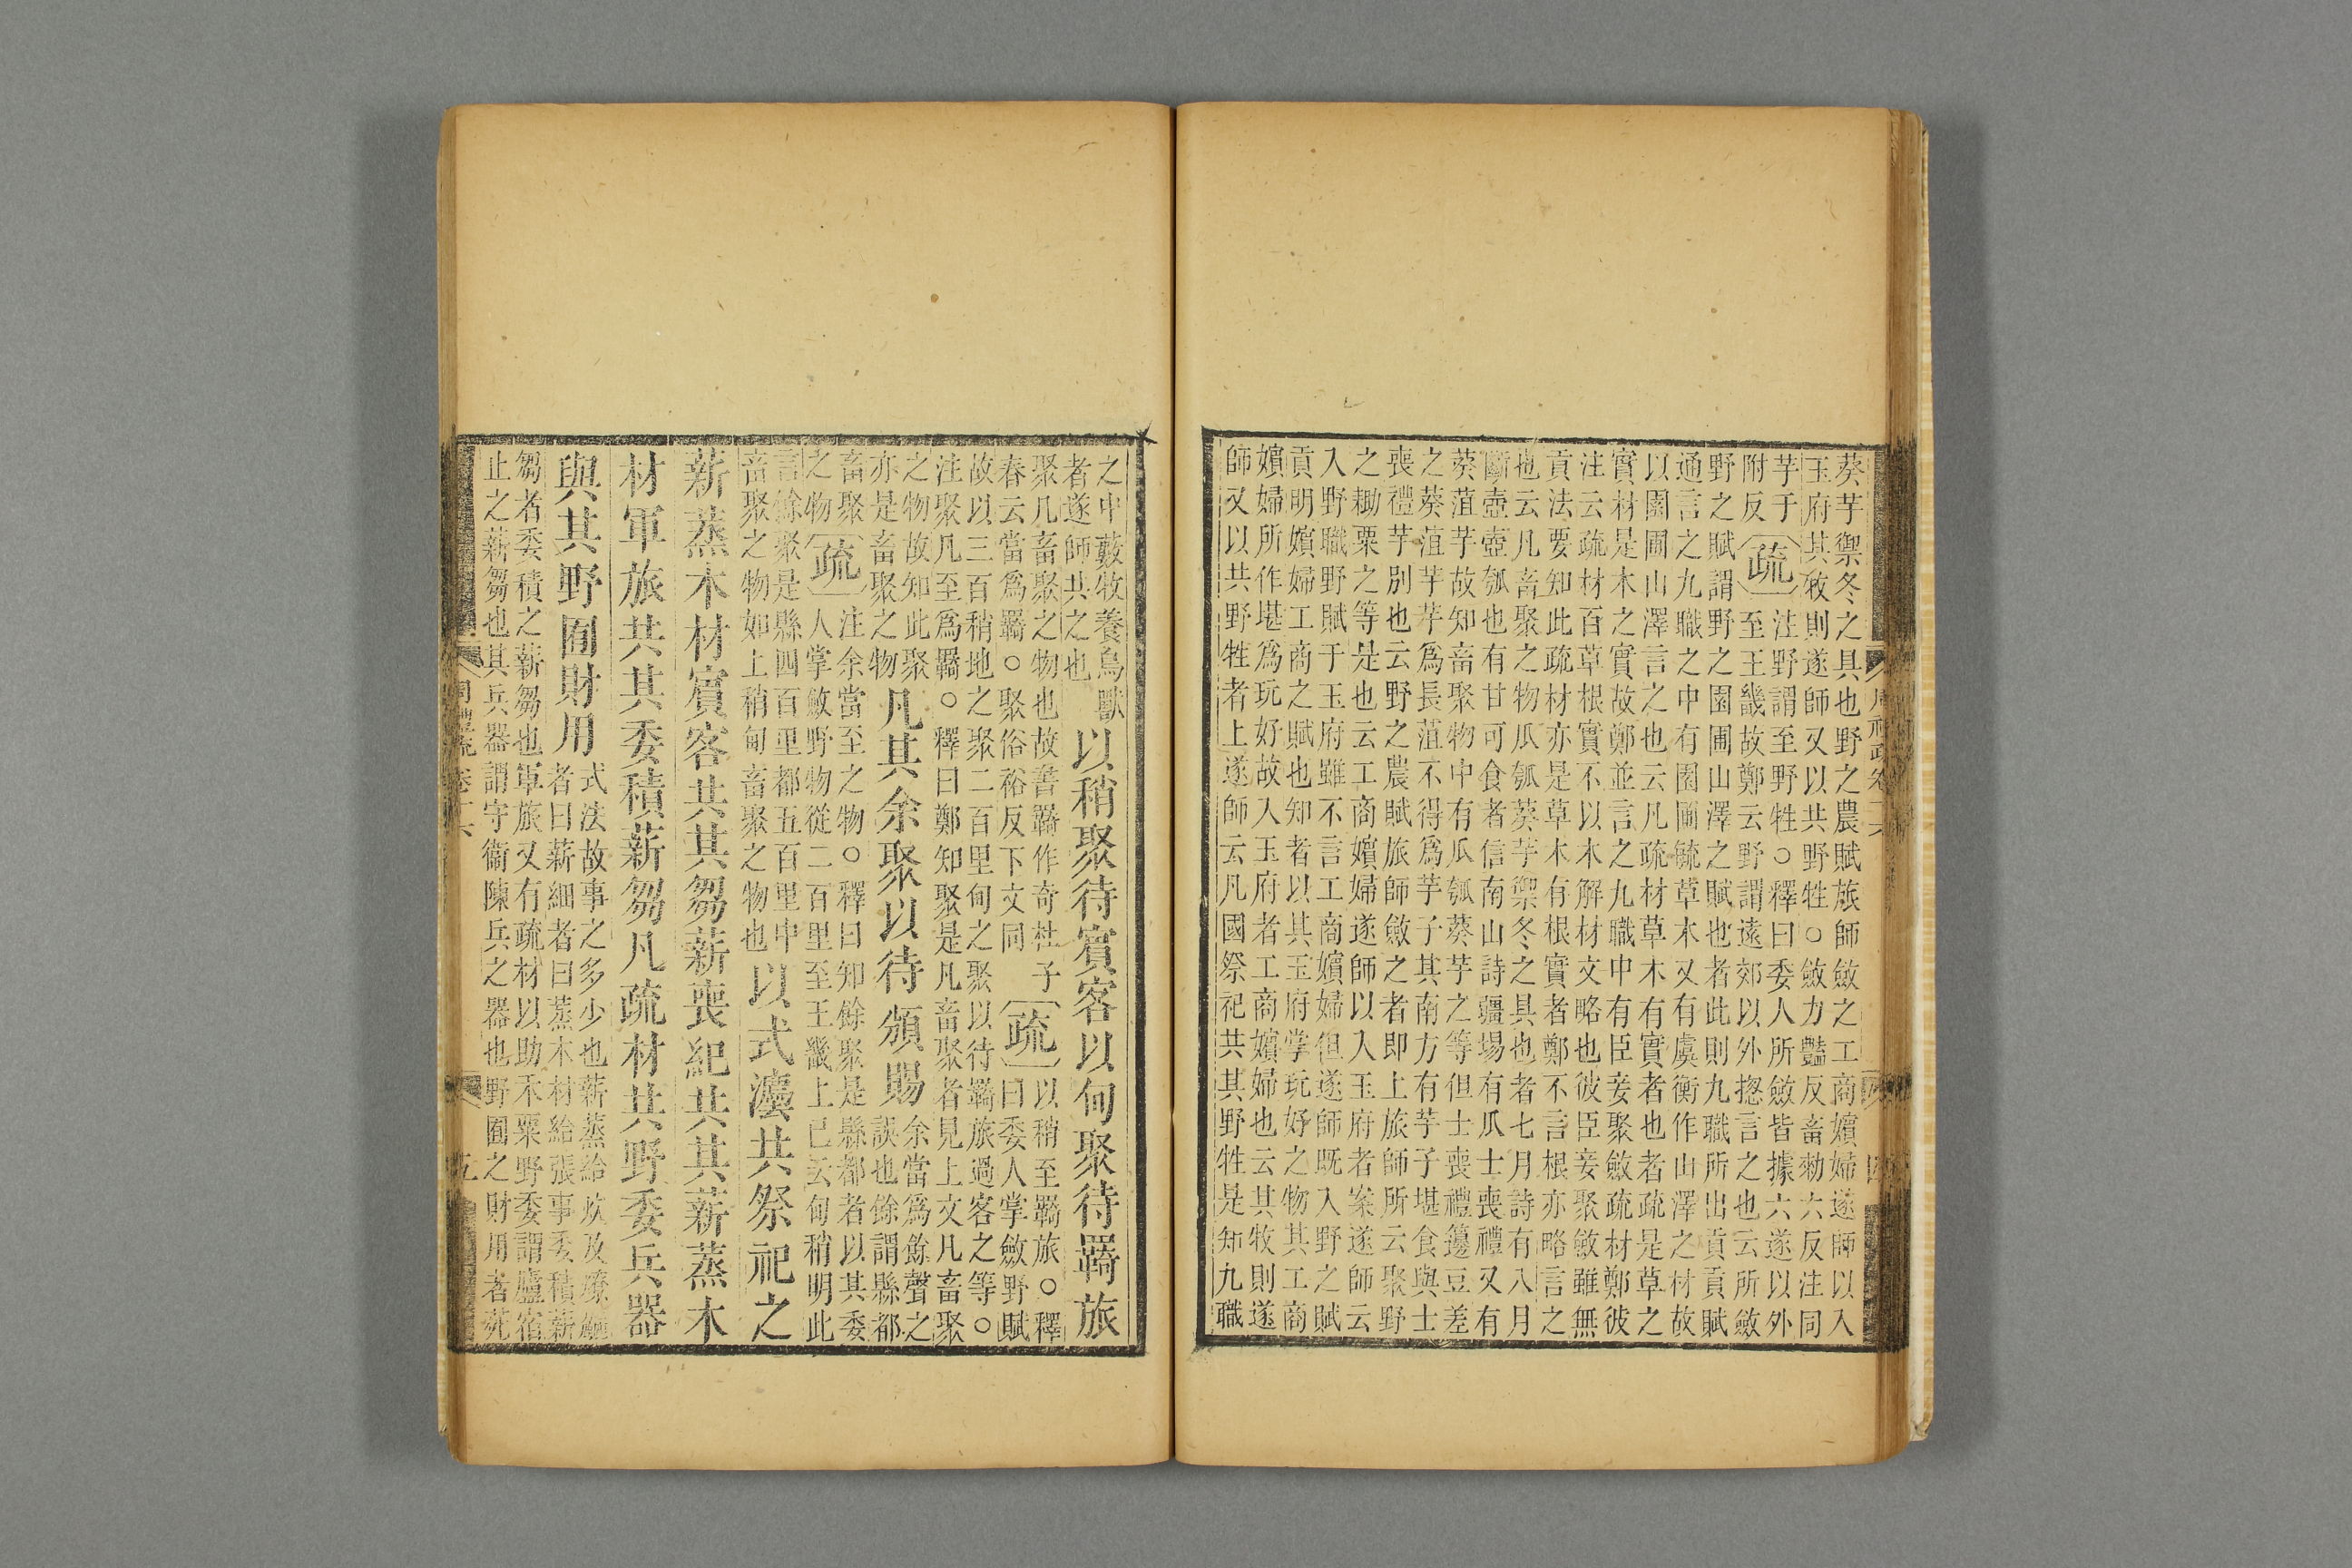 葵芋禦冬之具也野之農賦旅師斂之工商嬪婦遂師以入
玉府其牧則遂師又以共野牲○斂力豔反畜勑六反注同
芋于附反
疏
注野謂至野牲○釋曰委人所斂皆據六遂以外
至王畿故鄭云野謂遠郊以外揔言之也云所斂
野之賦謂野之園圃山澤之賦也者此則九職所出貢賦
通言之九職之中有園圃毓草木又有虞衡作山澤之材故
以園圃山澤言之也云凡疏材草木有實者也者疏是草之
實材是木之實故鄭並言之九職中有臣妾聚斂疏材鄭彼
注云疏材百草根實不以木解材文略也彼臣妾聚斂雖無
貢法要知此疏材亦是草木有根實者鄭不言根亦略言之
也云凡畜聚之物瓜瓠葵芋禦冬之具也者七月詩有八月
斷壺壺瓠也有甘可食者信南山詩疆埸有瓜士喪禮又有
葵菹芋故知畜聚物中有瓜瓠葵芋之等但士喪禮籩豆差
之葵菹芋芋爲長菹不得爲芋子其南方有芋子堪食與士
喪禮芋別也云野之農賦旅師斂之者即上旅師所云聚野
之耡粟之等是也云工商嬪婦遂師以入玉府者案遂師云
入野職野賦于玉府雖不言工商嬪婦但遂師既入野之賦
貢明嬪婦工商之賦也知者以其玉府掌玩好之物其工商
嬪婦所作堪爲玩好故入玉府者工商嬪婦也云其牧則遂
師又以共野牲者上遂師云凡國祭祀共其野牲是知九職
之中藪牧養鳥獸
者遂師共之也
以稍聚待賓客以甸聚待羇旅
聚凡畜聚之物也故書羇作奇杜子
春云當爲羇○聚俗裕反下文同
疏
以稍至羇旅○釋
曰委人掌斂野賦
故以三百稍地之聚二百里甸之聚以待羇旅過客之等○
注聚凡至爲羇○釋曰鄭知聚是凡畜聚者見上文凡畜聚
之物故知此聚
亦是畜聚之物
凡其余聚以待頒賜
余當爲餘聲之
誤也餘謂縣都
畜聚
之物
疏
注余當至之物○釋曰知餘聚是縣都者以其委
人掌斂野物從二百里至王畿上已云甸稍明此
言餘聚是縣四百里都五百里中
畜聚之物如上稍甸畜聚之物也
以式灋共祭祀之
薪蒸木材賓客共其芻薪喪紀共其薪蒸木
材軍旅共其委積薪芻凡疏材共野委兵器
與其野囿財用
式法故事之多少也薪蒸給炊及燎麤
者曰薪細者曰蒸木材給張事委積薪
芻者委積之薪芻也軍旅又有疏材以助禾粟野委謂廬宿
止之薪芻也其兵器謂守衞陳兵之器也野囿之財用者苑
周禮疏卷十六
五